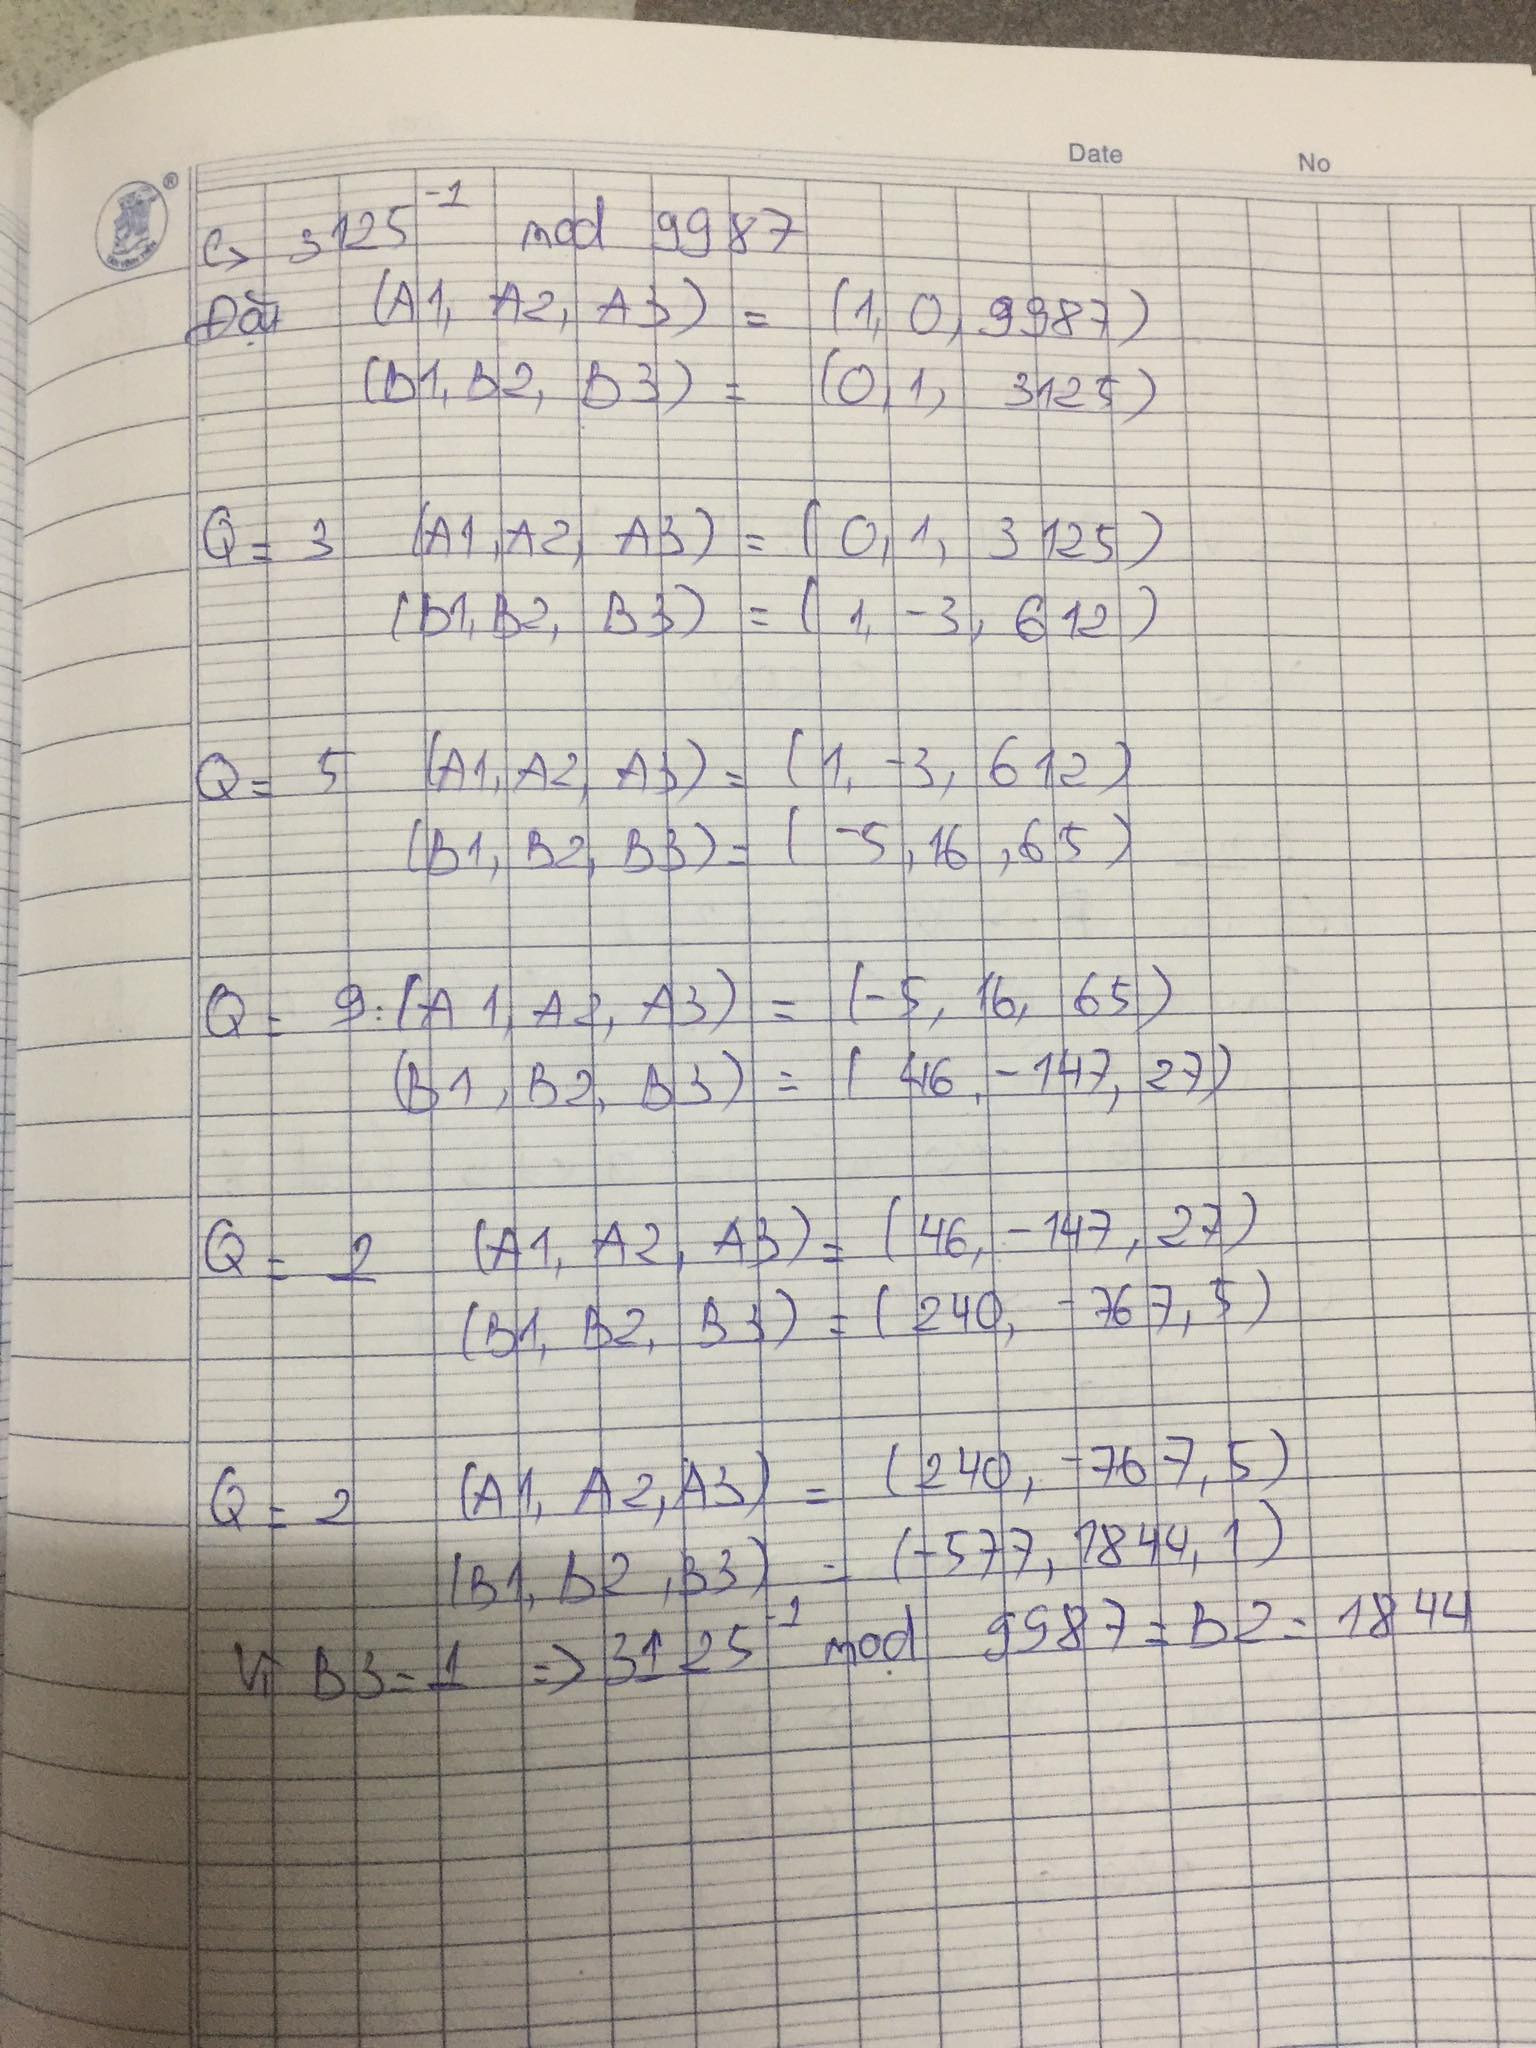 Date No
c> 3125^-1 mod 9987
Đặt (A1, A2, A3) = (1, 0, 9987)
(B1, B2, B3) = (0, 1, 3125)
Q = 3 (A1, A2, A3) = (0, 1, 3125)
(B1, B2, B3) = (1, -3, 612)
Q = 5 (A1, A2, A3) = (1, -3, 612)
(B1, B2, B3) = (-5, 16, 65)
Q = 9: (A1, A2, A3) = (-5, 16, 65)
(B1, B2, B3) = (46, -147, 27)
Q = 2 (A1, A2, A3) = (46, -147, 27)
(B1, B2, B3) = (240, -767, 5)
Q = 2 (A1, A2, A3) = (240, -767, 5)
(B1, B2, B3) = (-577, 1844, 1)
Vì B3 = 1 => 3125^-1 mod 9987 = B2 = 1844